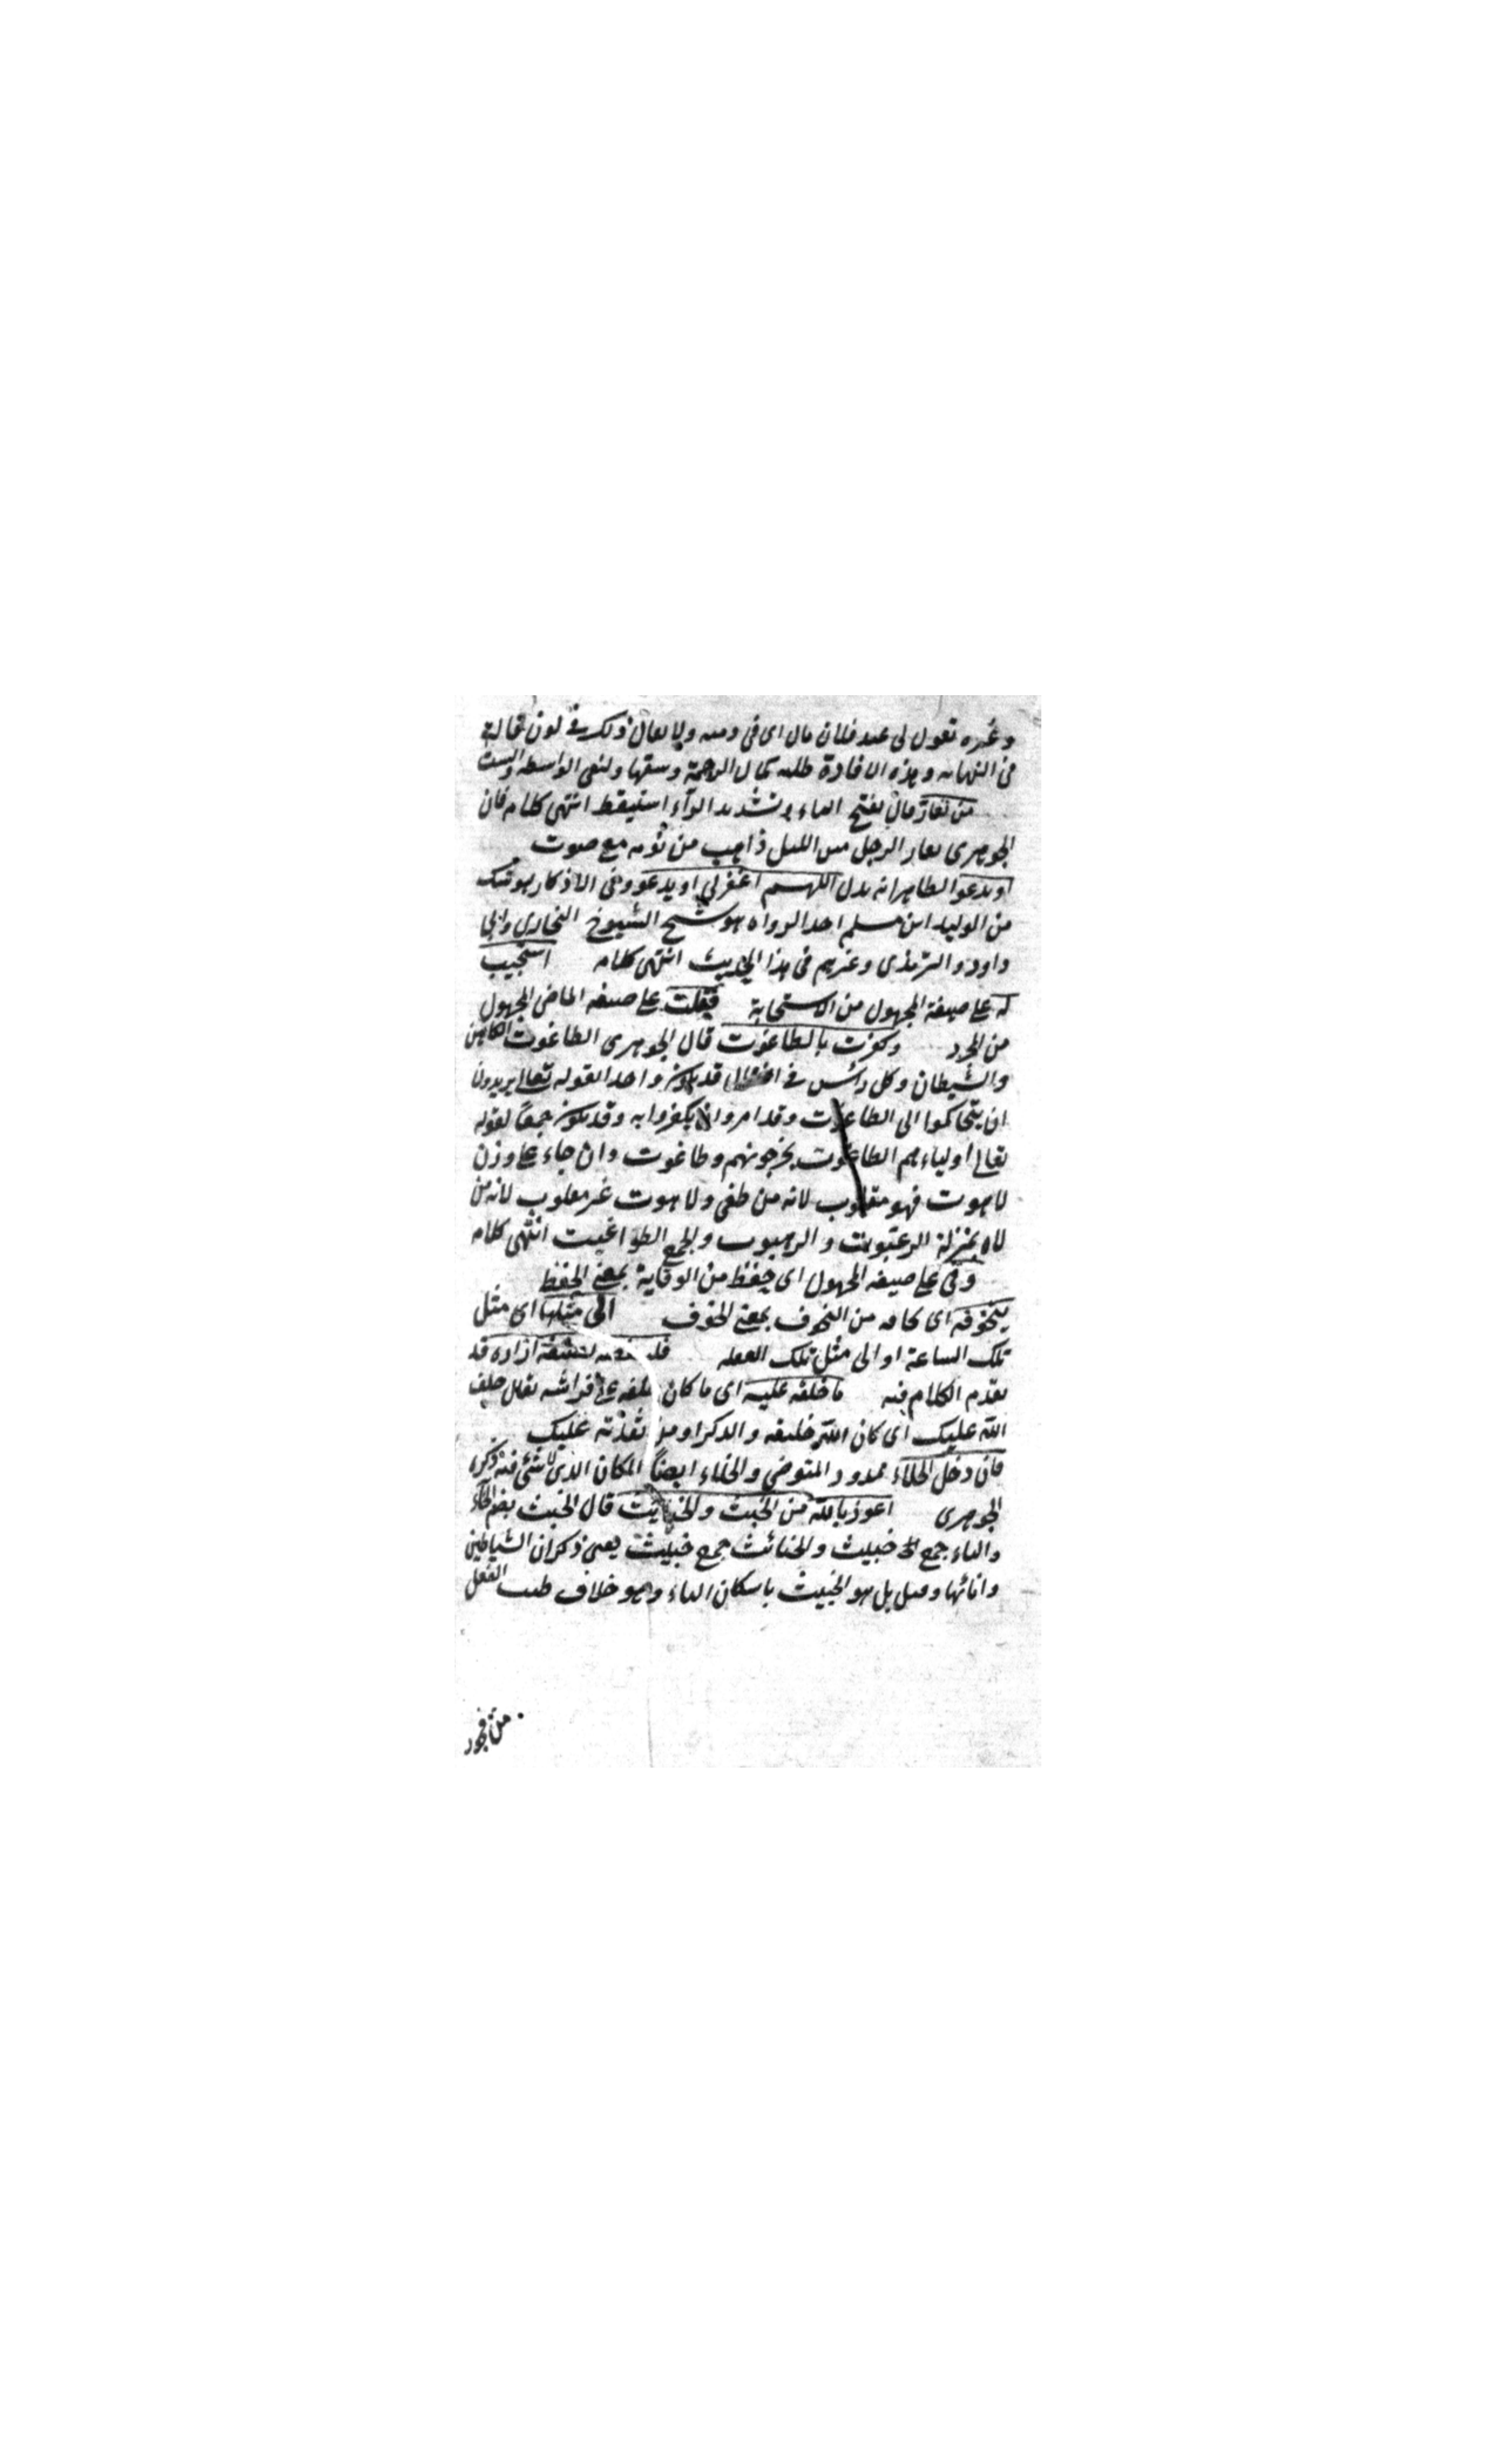 وغيره تقول لى عند فلان مال اى فى ذمته ولا يقال ذلك فى لون قاله
فى النهايه وهذه الافادة طلب كمال الرحمة وسعتها ولنفى الواسطه والست
من تعارّ قال بفتح التاء وتشديد الرآء استيقظ انتهى كلامه فان
الجوهرى تعار الرجل من الليل ذا هب من نومه مع صوت
او يدعو الظاهر انه بدل اللهم اغفرلى او يدعو وفى الاذكار هو شك
من الوليد ابن مسلم احد الرواه هو شيخ الشيوخ البخارى وابى
داود والترمذى وغيرهم فى هذا الحديث انتهى كلامه استجيب
له على صيغة المجهول من الاستجابة فقلت على صيغه الماضى المجهول
من المجرد وكفرت بالطاغوت قال الجوهرى الطاغوت الكاهن
والشيطان وكل رأس فى الضلال قد يكون واحدا لقوله تعالى يريدون
ان يتحاكموا الى الطاغوت وقد امروا ان يكفروا به وقد يكون جمعا لقوله
تعالى اولياءهم الطاغوت يخرجونهم وطاغوت وان جاء على وزن
لاهوت فهو مقلوب لانه من طغى ولاهوت غير مقلوب لانه من
لاه بمنزلة الرغبوت والرهبوت والجمع الطواغيت انتهى كلامه
وقى على صيغه المجهول اى حفظ من الوقاية بمعنى الحفظ
يتخوفه اى يخافه من التخوف بمعنى الخوف الى مثلها اى مثل
تلك الساعة او الى مثل تلك الفعله فلينفضه بصنفة ازاره قد
تقدم الكلام فيه ما خلفه عليه اى ما كان خلفه على فراشه يقال خلف
الله عليك اى كان الله خليفه والدك او من فقدته عليك
فان دخل الخلاء ممدود المتوضى والخلاء ايضاً المكان الذى لا شئ فيه ذكره
الجوهرى اعوذ بالله من الخبث والخبايث قال الخبث بضم الخاء
والباء جمع الخبيث والخبائث جمع خبيثة يعنى ذكران الشياطين
واناثها وقيل بل هو الخبث باسكان الباء وهو خلاف طيب الفعل
من فجور